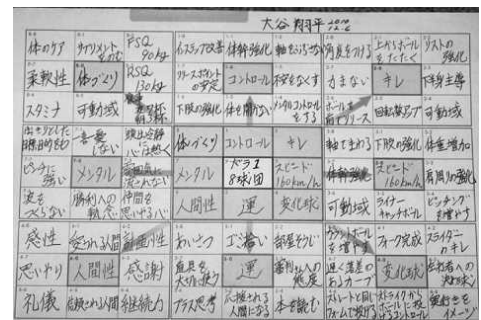 大谷 翔平
体のケア サプリメントをのむ FSQ 90kg インステップ改善 体幹強化 軸をぶらさない 角度をつける 上からボールをたたく リストの強化
柔軟性 体づくり RSQ 130kg リリースポイントの安定 コントロール 不安をなくす 力まない キレ 下半身主導
スタミナ 可動域 食事 夜7杯 朝3杯 下肢の強化 体を開かない メンタルコントロールをする ボールを前でリリース 回転数アップ 可動域
はっきりとした目標、目的をもつ 一喜一憂しない 頭は冷静に心は熱く 体づくり コントロール キレ 軸でまわる 下肢の強化 体重増加
ピンチに強い メンタル 雰囲気に流されない メンタル ドラ1 8球団 スピード 160km/h 体幹強化 スピード 160km/h 肩周りの強化
波をつくらない 勝利への執念 仲間を思いやる心 人間性 運 変化球 可動域 ライナーキャッチボール ピッチングを増やす
感性 愛される人間 計画性 あいさつ ゴミ拾い 部屋そうじ カウントボールを増やす フォーク完成 スライダーのキレ
思いやり 人間性 感謝 道具を大切に扱う 運 審判さんへの態度 遅く落差のあるカーブ 変化球 左打者への決め球
礼儀 信頼される人間 継続力 プラス思考 応援される人間になる 本を読む ストレートと同じフォームで投げる ストライクからボールに投げるコントロール 奥行きをイメージ